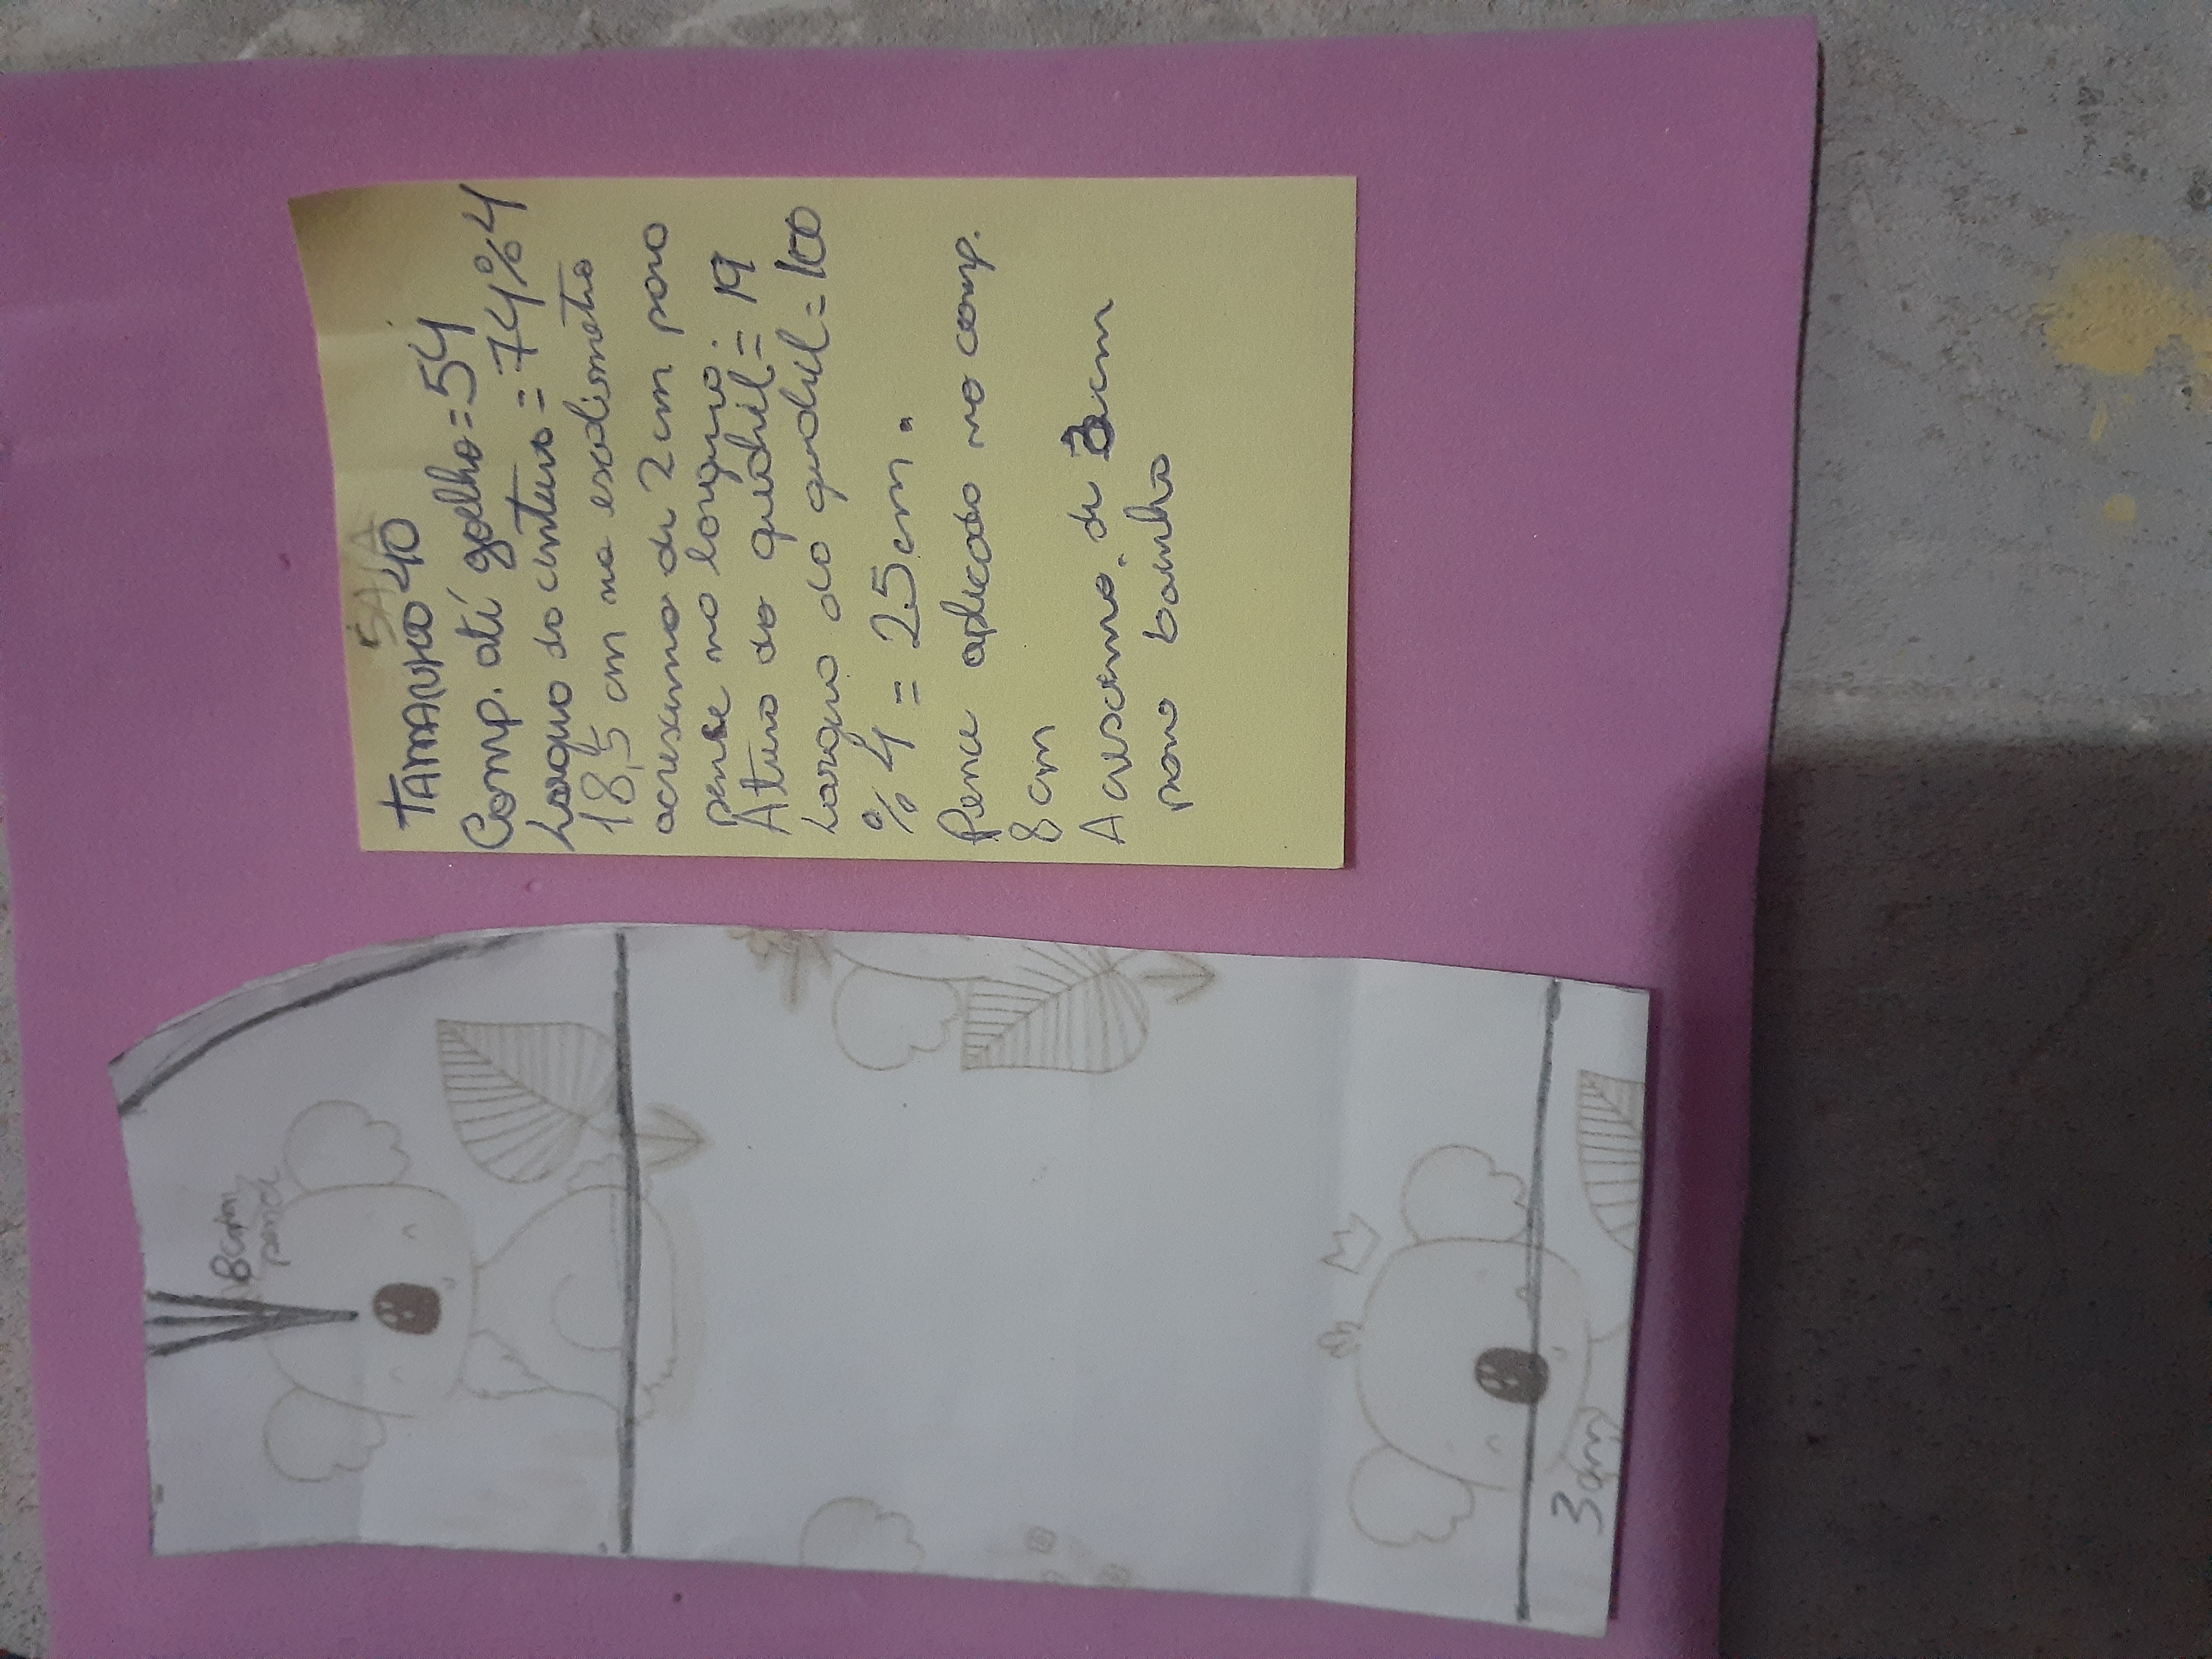 SAIA
TAMANHO 40
Comp. até goelho = 54
Largura da cintura = 74 % 4
18,5 cm na escalimetro
acresimo di 2 cm para
pense na largura.
Altura do quadril = 19
Largura do quadril = 100
% 4 = 25 cm.
Pence aplicada no comp.
8 cm
Acrescimo. di 3 cm
para bainha
8 cm
pence
3 cm